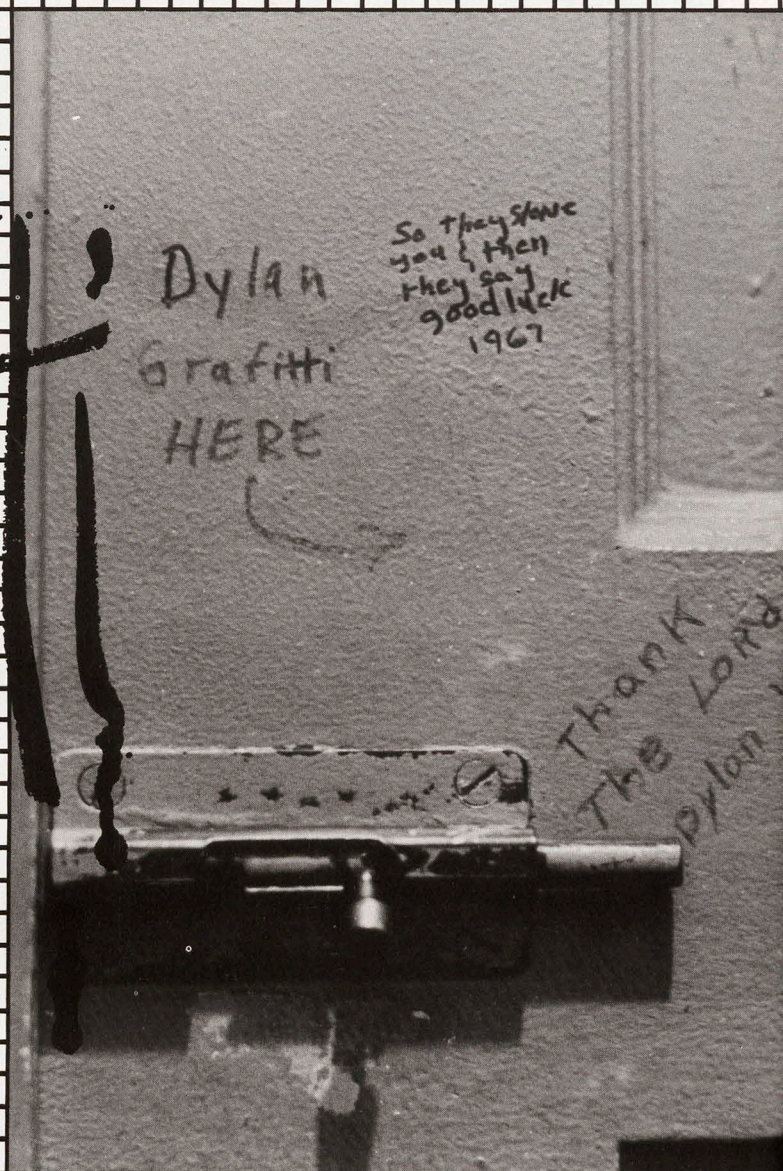 Dylan
Grafitti
HERE
So they stone
you & then
they say
good luck
1967
Thank
The LORd
Dylan